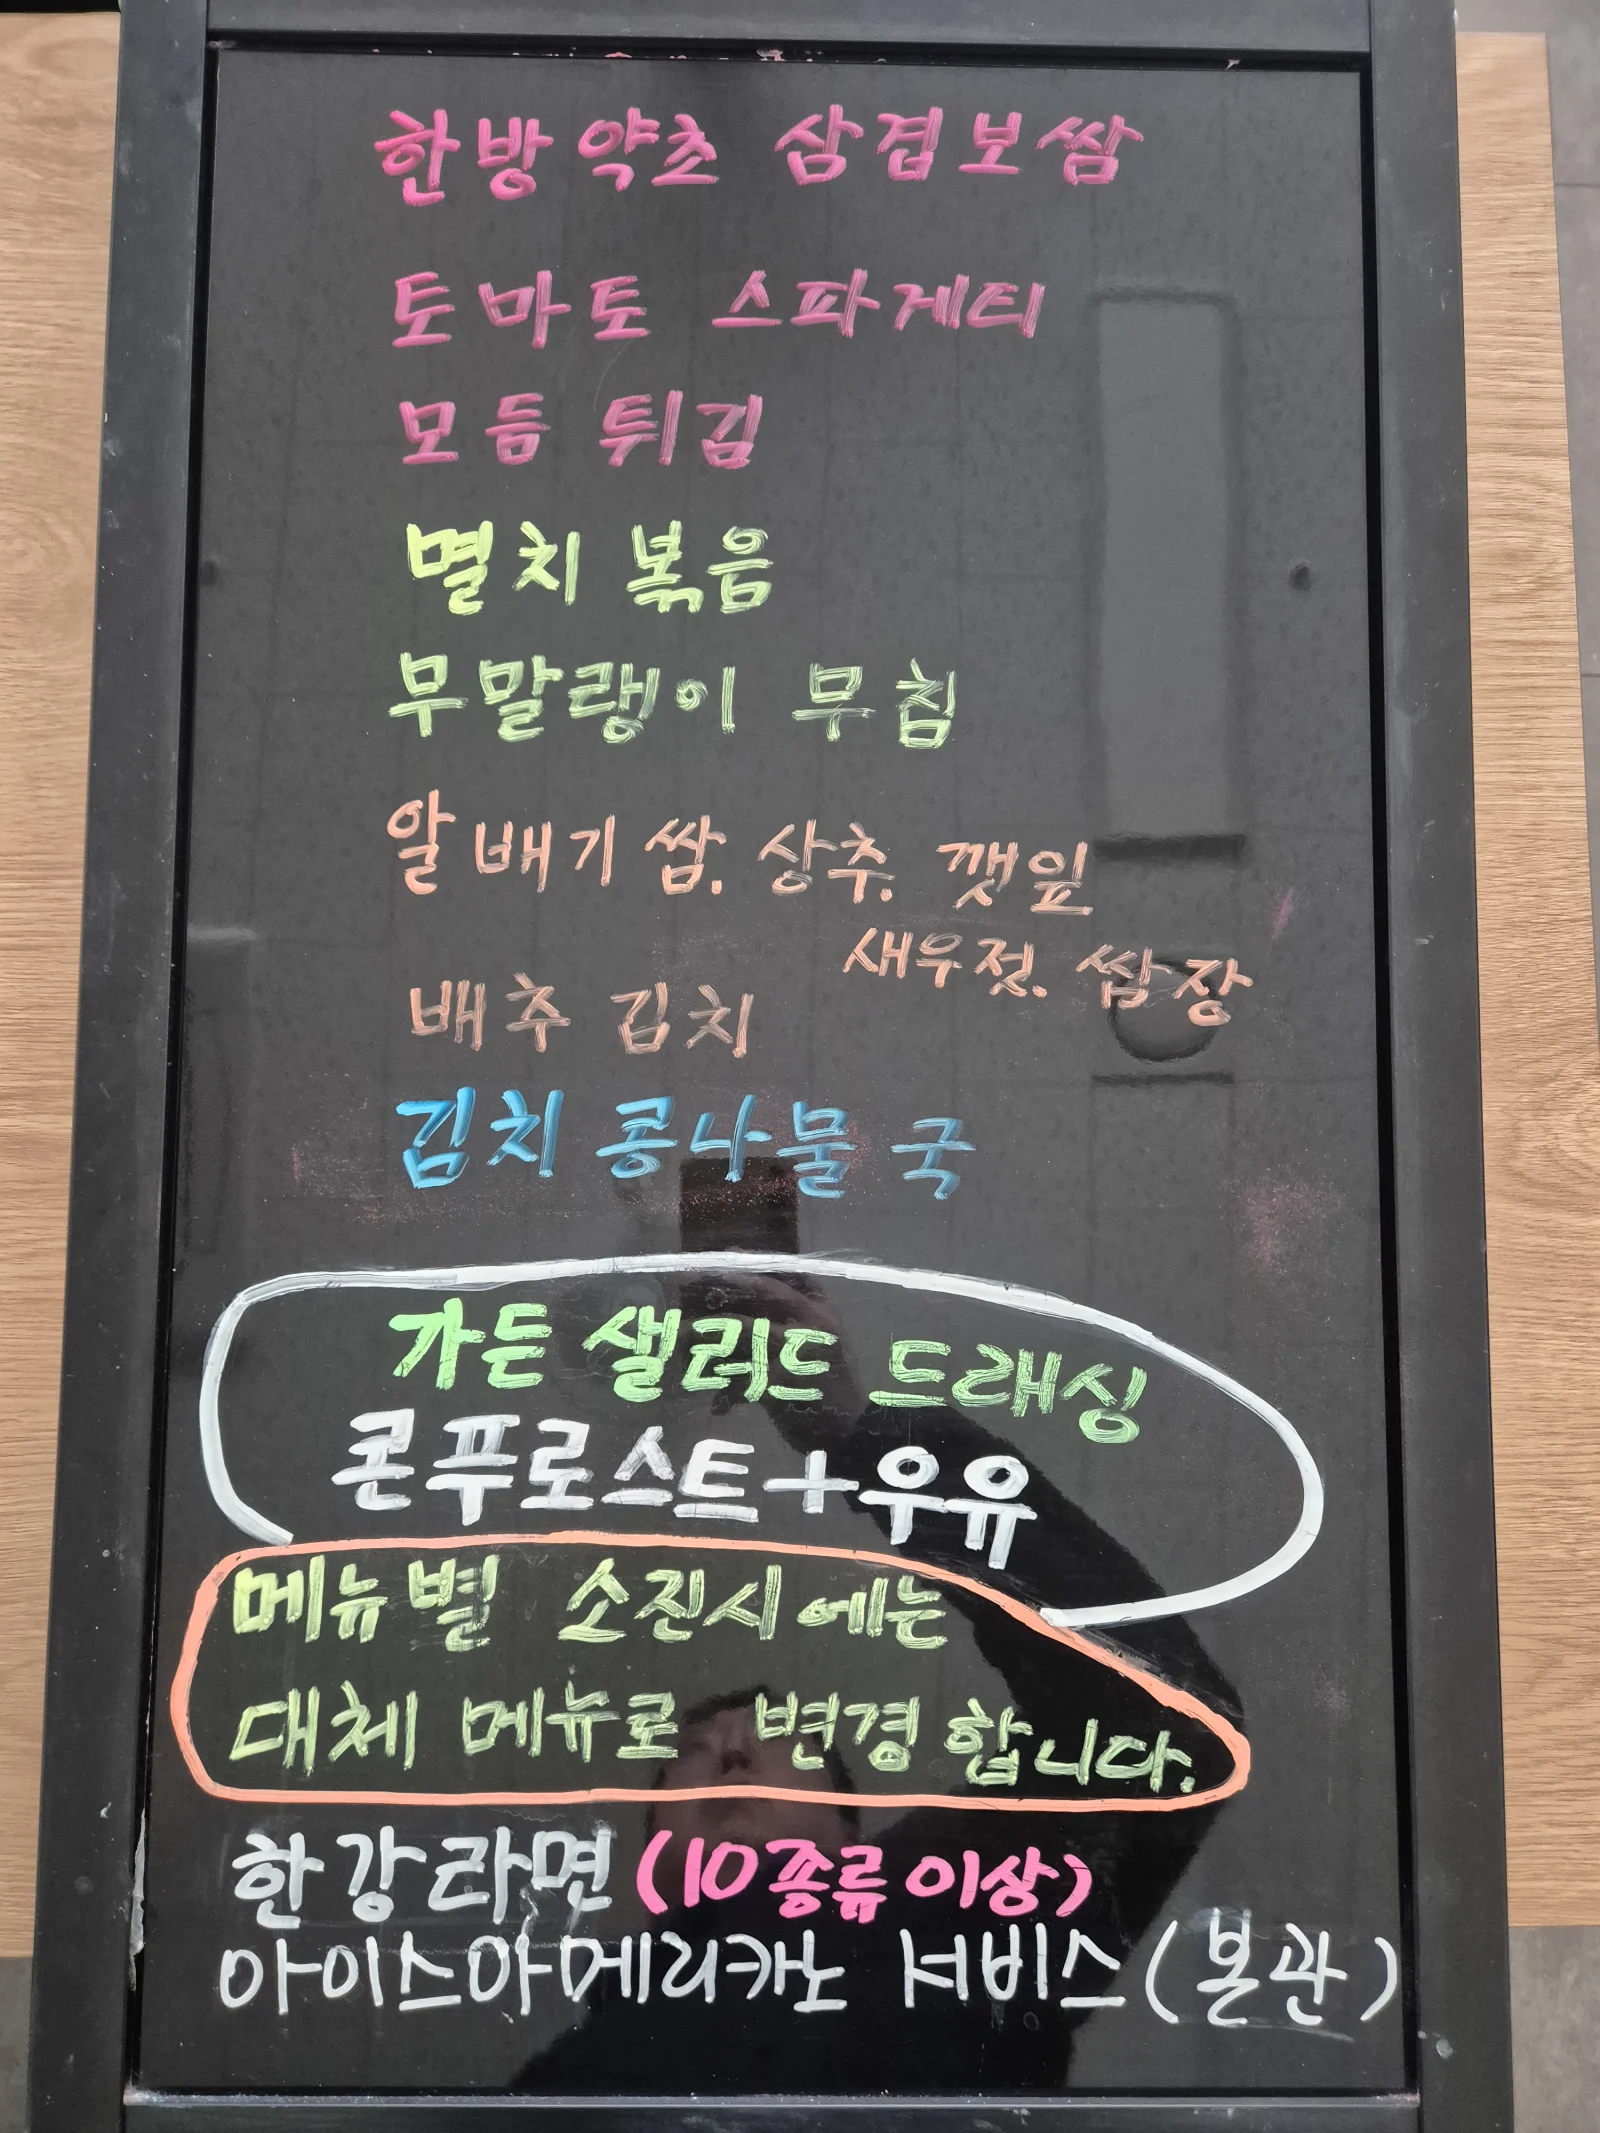 한방약초 삼겹보쌈
토마토 스파게티
모듬 튀김
멸치 볶음
무말랭이 무침
알배기쌈. 상추. 깻잎
새우젓. 쌈장
배추 김치
김치 콩나물 국
가든 샐러드 드래싱
콘푸로스트+우유
메뉴별 소진시에는
대체 메뉴로 변경합니다.
한강라면 (10종류이상)
아이스아메리카노 서비스(본관)